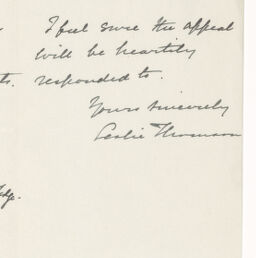 I feel sure the appeal
will be heartily
ts. responded to.
Yours sincerely
Leslie Thomson